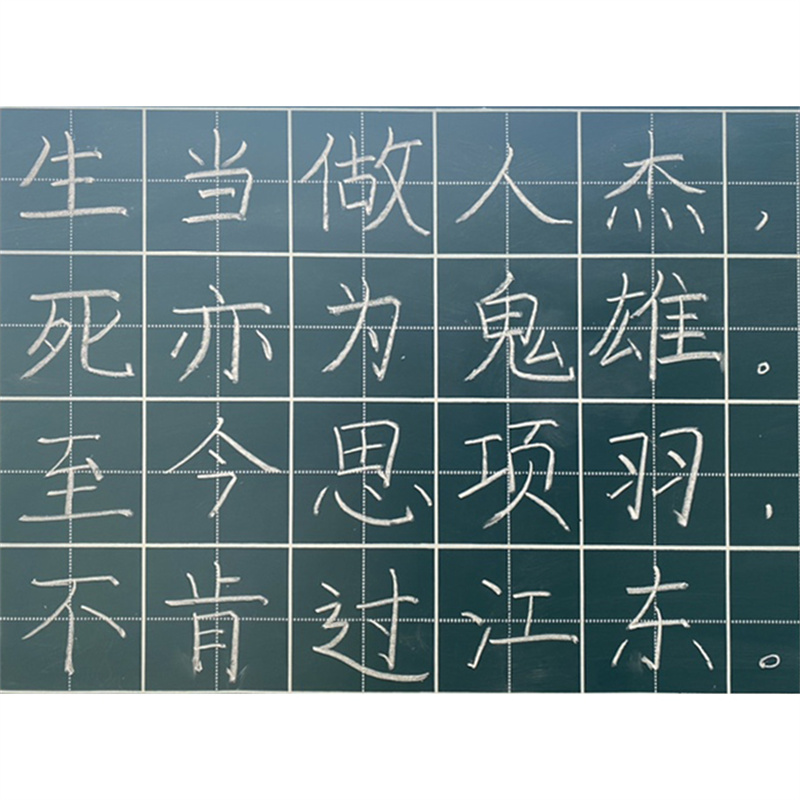 生当做人杰，
死亦为鬼雄。
至今思项羽，
不肯过江东。